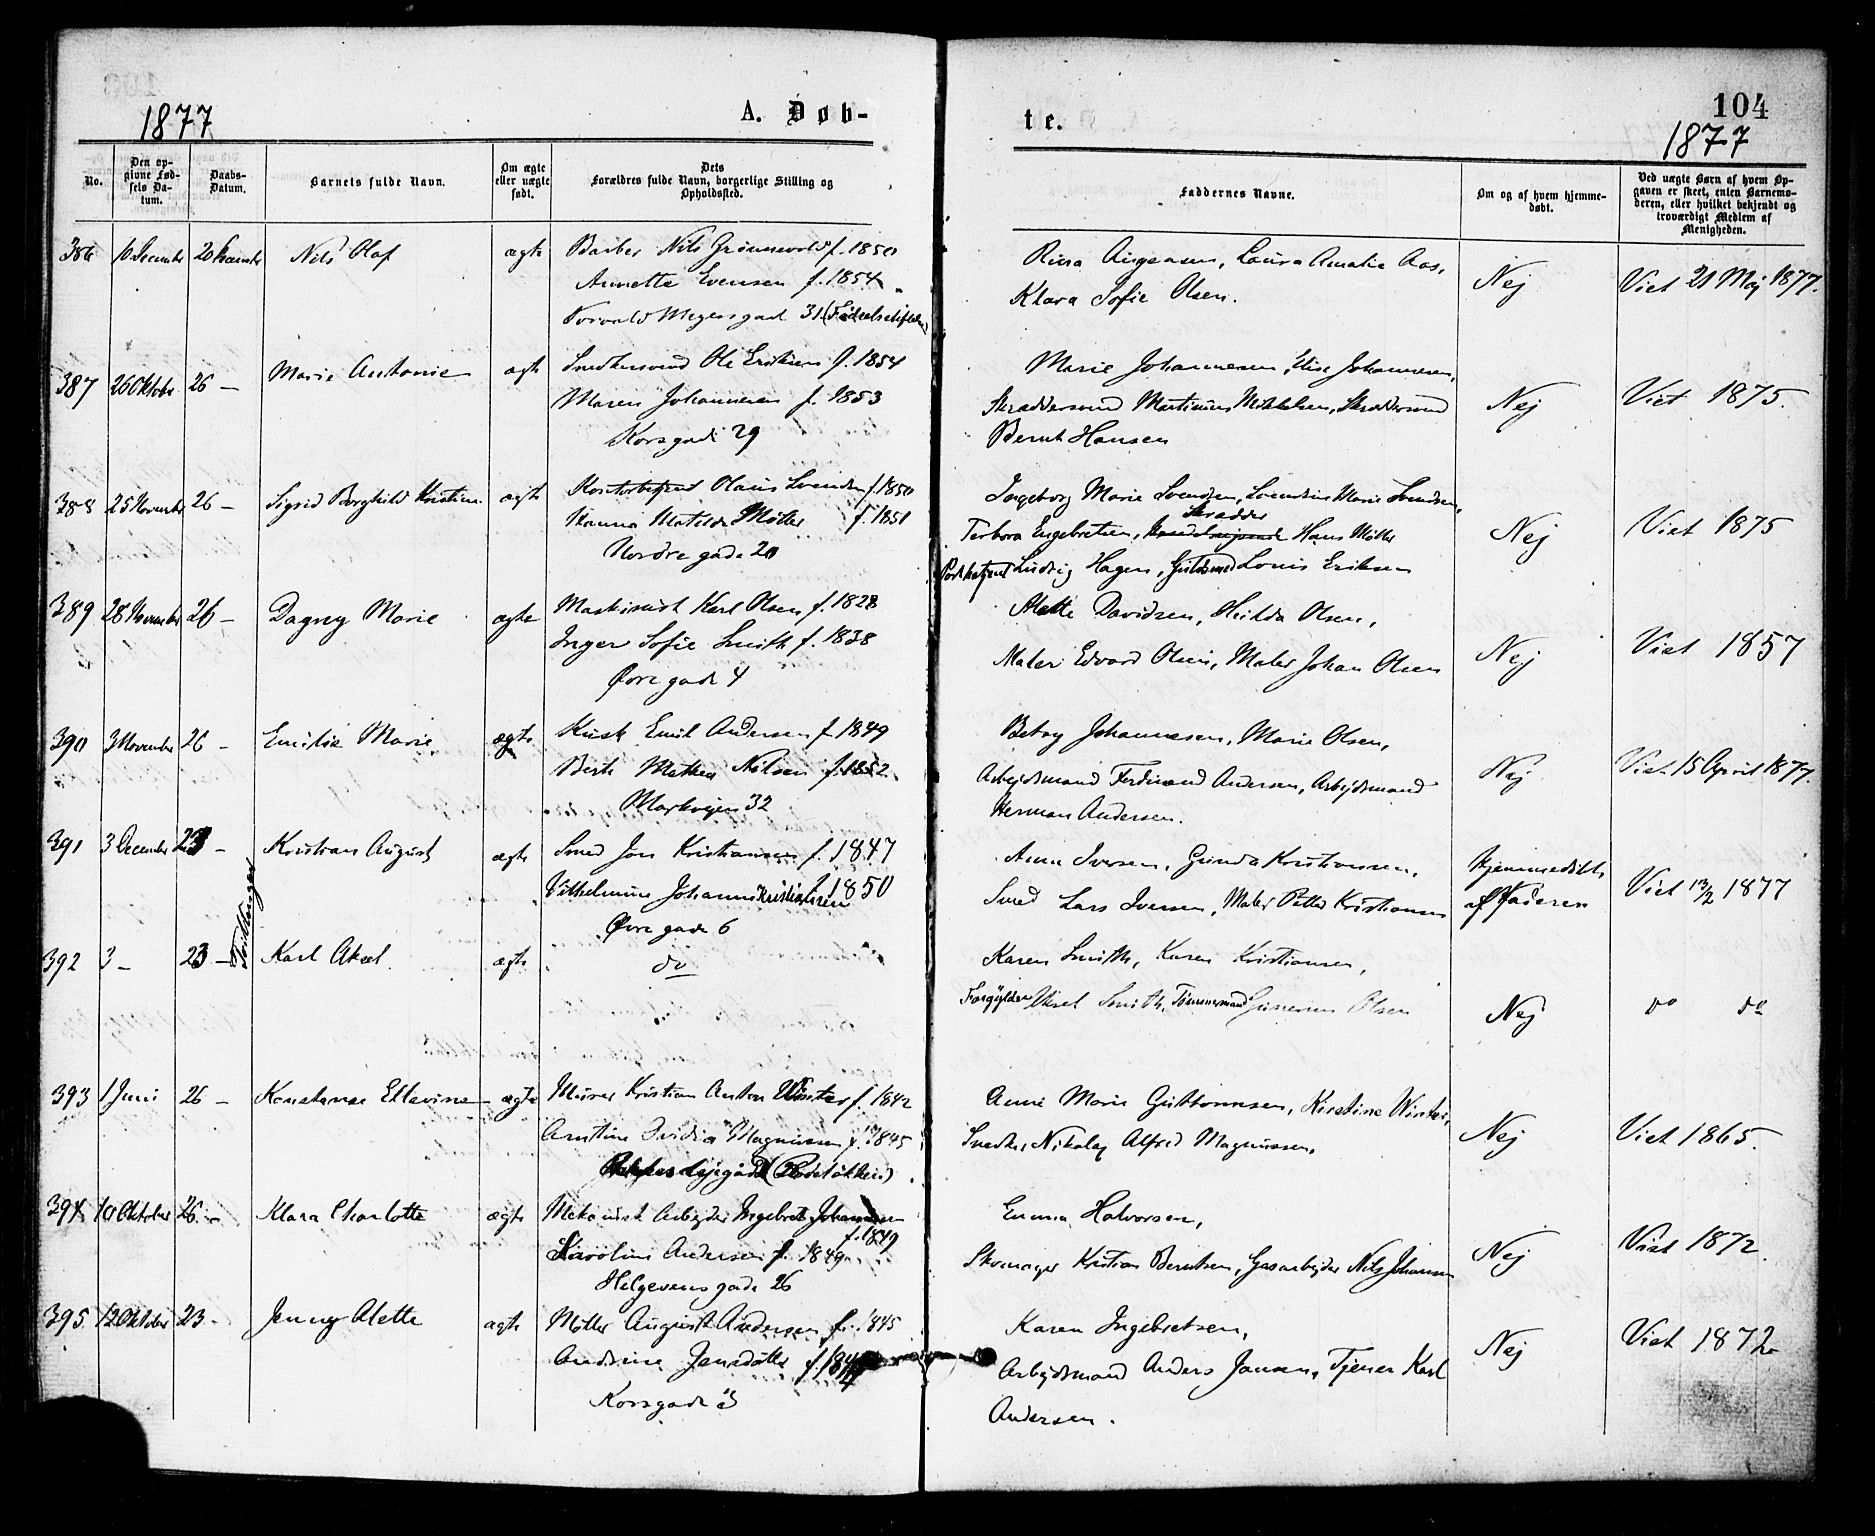 1877
A. Døb-
No.
Den op-
givne Fød-
sels Da-
tum.
Daabs-
Datum.
Barnets fulde Navn.
Om ægte
eller uægte
født.
Dets
Forældres fulde Navn, borgerlige Stilling og
Opholdssted.
386 10 December 26 December Nils Olaf ægte Barber Nils Grønnvold f. 1850
Annette Evensen f. 1854
Torvald Meyersgad 31 (Fødselsstiftelsen)
387 26 Oktober 26 – Marie Antonie ægte Snedkersvend Ole Eriksen f. 1854
Maren Johannesen f. 1853
Korsgade 29
388 25 November 26 – Sigrid Borghild Kristine ægte Kontorbetjent Olaus Svendsen f. 1850
Hanna Matilde Møller f. 1851
Nordregade 20
389 28 November 26 – Dagny Marie ægte Maskinist Karl Olsen f. 1828
Inger Sofie Smith f. 1838
Øvregade 4
390 3 November 26 – Emilie Marie ægte Kusk Emil Andersen f. 1849
Berte Mathea Nilsen f. 1852
Markvejen 32
391 3 December 23 – Kristian August ægte Smed Jon Kristiansen f. 1847
Vilhelmine Johanne Kristiansen f. 1850
Øvregade 6
Tvillinger
392 3 – 23 – Karl Aksel ægte do
393 1 Juni 26 – Konstanse Ellevine ægte Murer Kristian Anton Winter f. 1842
Magnussen f. 1845
394 10 Oktober 26 – Klara Charlotte ægte Mekanisk Arbejder Ingebret Johannesen
f. 1849
Karoline Andersen f. 1849
Helgesensgade 26
395 12 Oktober 23 – Jenny Alette ægte Møller August Andersen f. 1845
Andrine Jensdatter f. 1844
Korsgade 3
te.
104
1877
Faddernes Navne.
Om og af hvem hjemme-
døbt.
Ved uægte Børn af hvem Op-
gaven er skeet, enten Barnemo-
deren, eller hvilket bekjendt og
troværdigt Medlem af
Menigheden.
Laura Amalie Aas,
Klara Sofie Olsen. Nej Viet 21 Maj 1877.
Marie Johannesen, Elise Johannesen,
Skræddersvend Martinius Mikkelsen, Skræddersvend
Bernt Hansen Nej Viet 1875.
Ingeborg Marie Svendsen, Lovendine Marie Svendsen,
Skrædder
Torbora Engebretsen, Hans Møller
Postbetjent Ludvig Hagen, Guldsmed Louis Eriksen Nej Viet 1875
Alette Davidsen, Hilda Olsen,
Maler Edvard Olsen, Maler Johan Olsen Nej Viet 1857
Betsy Johannesen, Marie Olsen,
Arbejdsmand Ferdinand Andersen, Arbejdsmand
Herman Andersen. Nej Viet 15 April 1877
Anna Iversen, Gunda Kristiansen,
Smed Lars Iversen, Maler Petter Kristiansen Hjemmedøbt
af Faderen Viet 13/2 1877
Karen Smith, Karen Kristiansen,
Forgylder Aksel Smith, Tømmermand Olsen Nej do do
Anne Marie Guttormsen, Kirstine Winter,
Snedker Nikolay Alfred Magnussen, Nej Viet 1865.
Emma Halvorsen,
Skomager Kristian Berntsen, Gasarbejder Nils Johansen Nej Viet 1872
Karen Ingebretsen,
Arbejdsmand Anders Jansen, Tjener Karl
Andersen. Nej Viet 1872